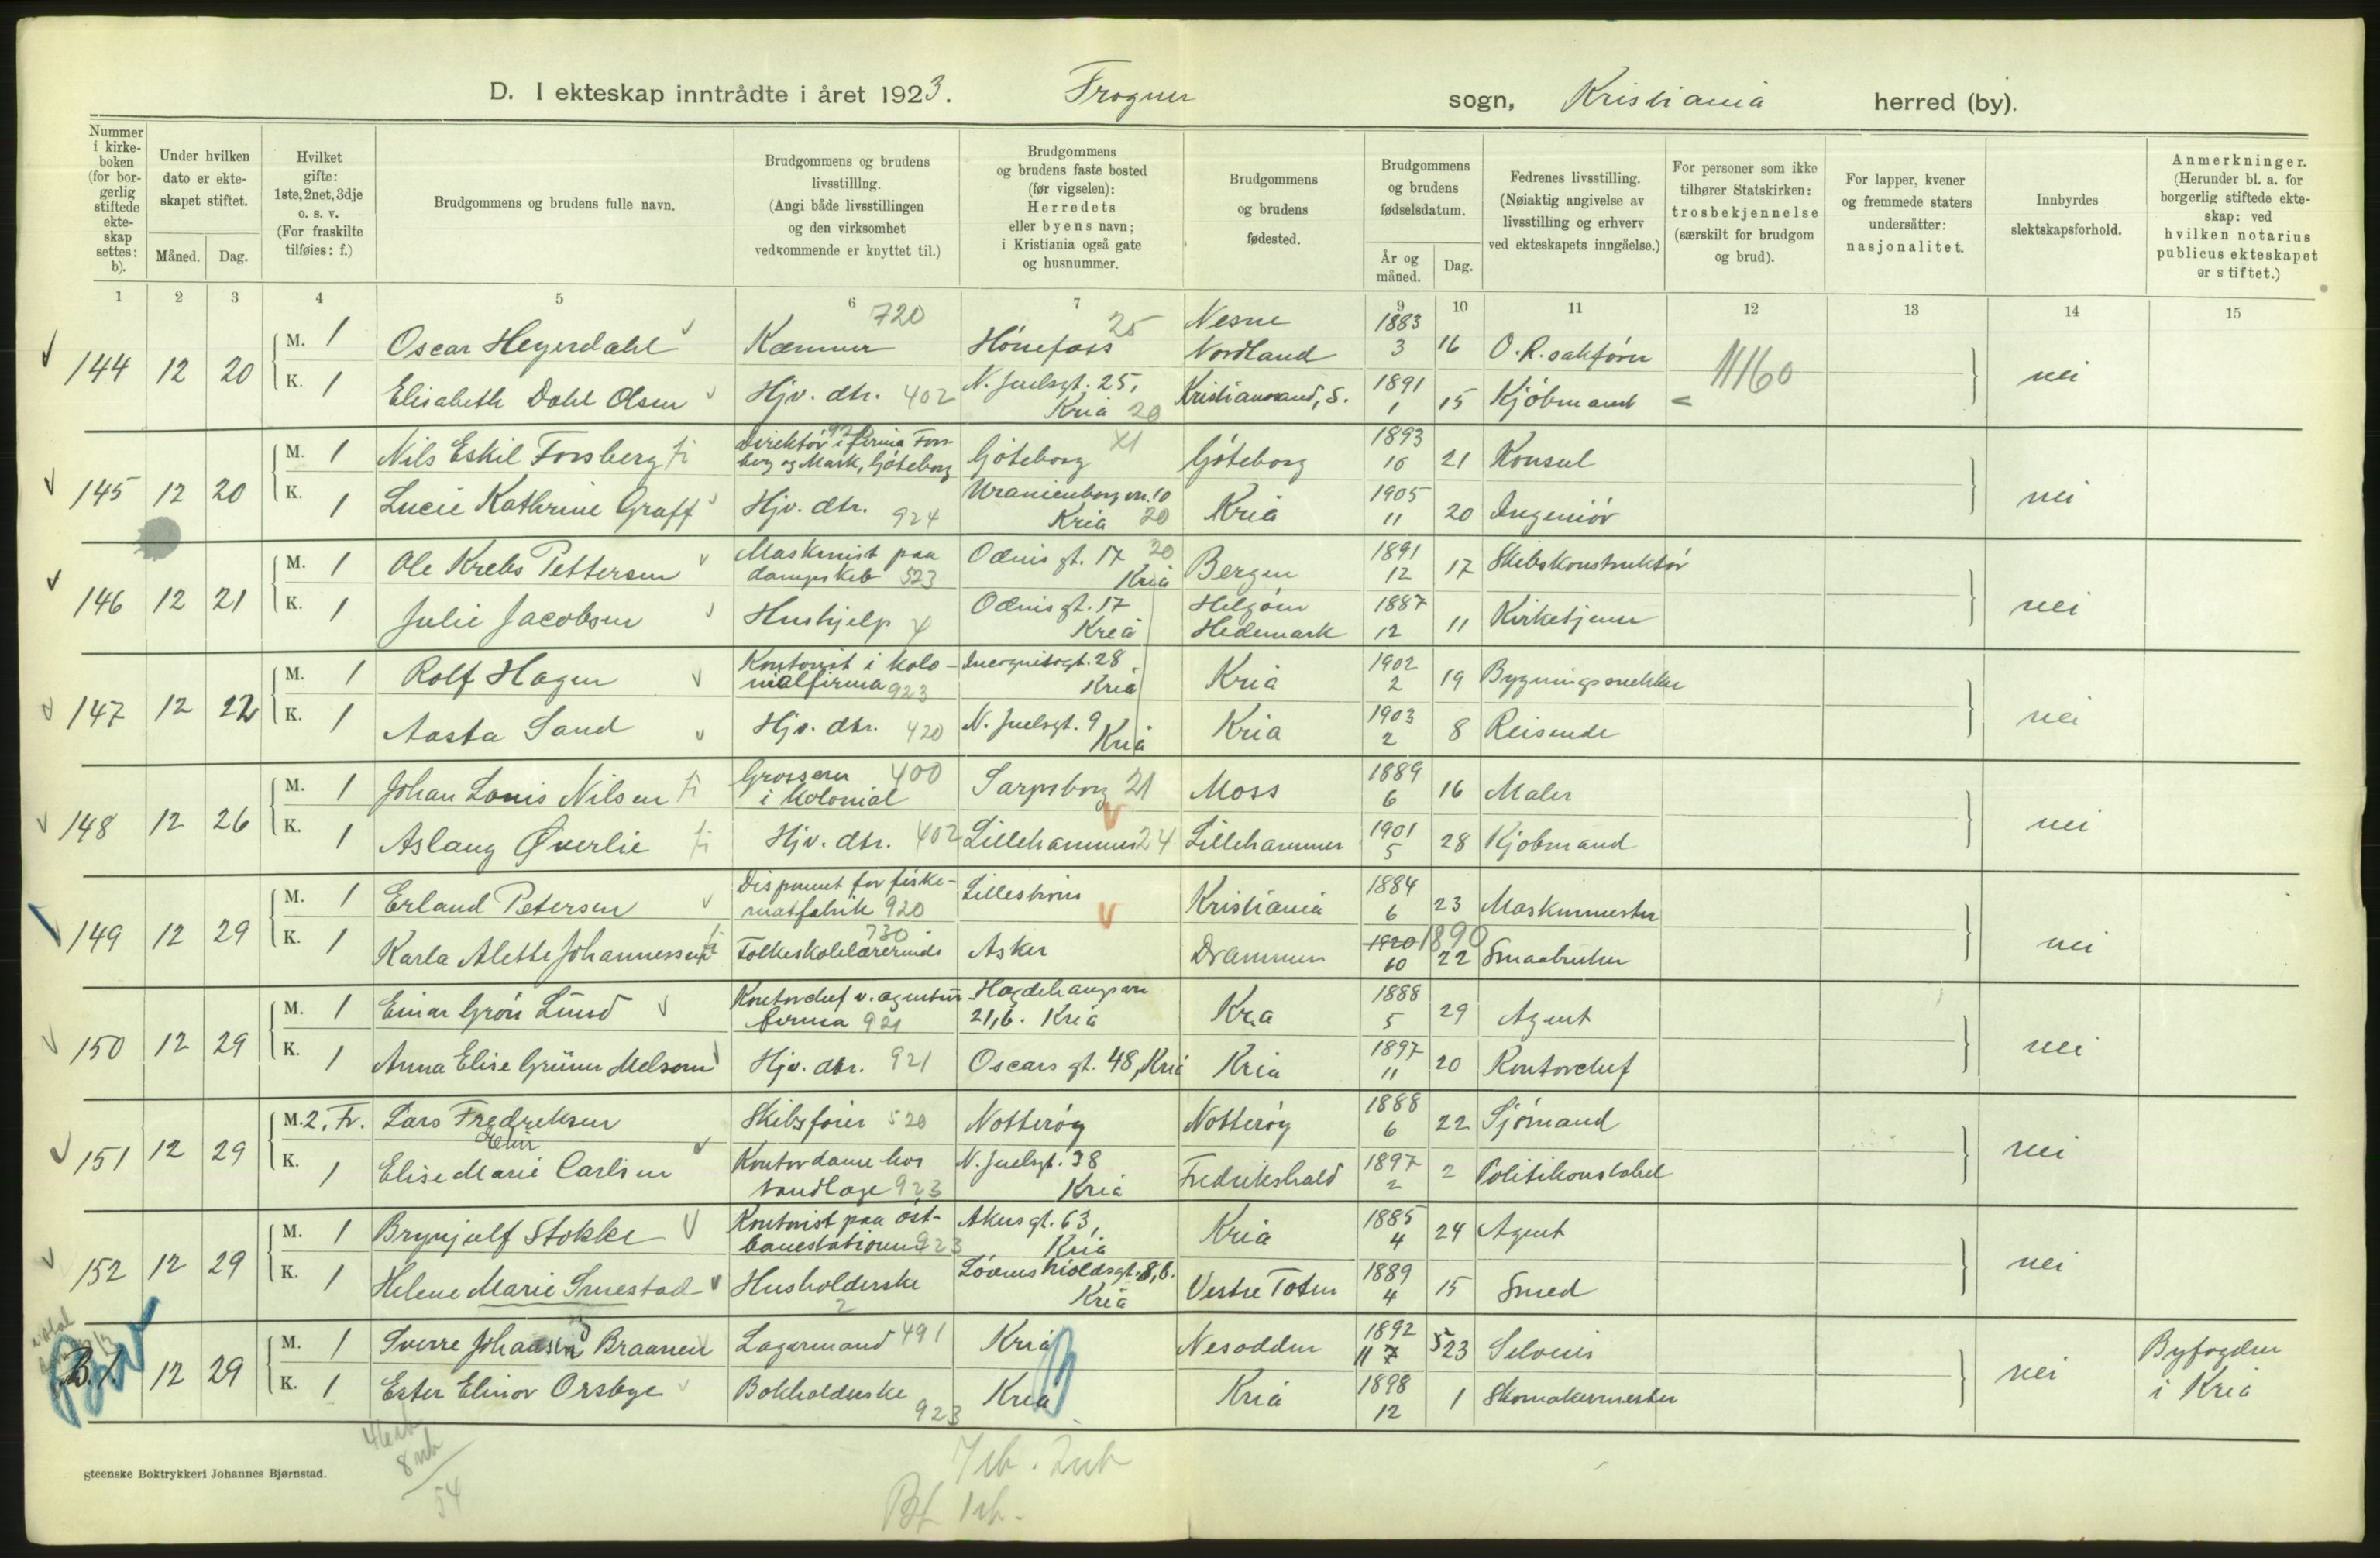 D. I ekteskap inntrådte i året 1923. Frogner sogn, Kristiania herred (by).
Nummer i kirke-boken (for bor-gerlig stiftede ekte-skap settes: b).
Under hvilken dato er ekte-skapet stiftet.
Måned. Dag.
Hvilket gifte: 1ste, 2net, 3dje o. s. v. (For fraskilte tilføies: f.)
Brudgommens og brudens fulle navn.
Brudgommens og brudens livsstilling. (Angi både livsstillingen og den virksomhet vedkommende er knyttet til.)
Brudgommens og brudens faste bosted (før vigselen): Herredets eller byens navn; i Kristiania også gate og husnummer.
Brudgommens og brudens fødested.
Brudgommens og brudens fødselsdatum.
År og måned. Dag.
Fedrenes livsstilling. (Nøiaktig angivelse av livsstilling og erhverv ved ekteskapets inngåelse.)
For personer som ikke tilhører Statskirken: trosbekjennelse (særskilt for brudgom og brud).
For lapper, kvener og fremmede staters undersåtter: nasjonalitet.
Innbyrdes slektskapsforhold.
Anmerkninger. (Herunder bl. a. for borgerlig stiftede ekte-skap: ved hvilken notarius publicus ekteskapet er stiftet.)
1 2 3 4 5 6 7 9 10 11 12 13 14 15
144 12 20 M. 1 Oscar Heyerdahl Kæmner 720 Hönefoss 25 Nesne Nordland 1883 3 16 O.R.sakförer 11160 nei
K. 1 Elisabeth Dahl Olsen Hjv. dtr. 402 N. Juelsgt. 25, Kria 20 Kristiansand, S. 1891 1 15 Kjöbmand
145 12 20 M. 1 Nils Eskil Forsberg Direktör i firma Fors-berg og Mark, Göteborg Göteborg Göteborg 1893 10 21 Konsul nei
K. 1 Lucie Kathrine Graff Hjv. dtr. 924 Uranienborgvn. 10 Kria 20 Kria 1905 11 20 Ingeniör
146 12 21 M. 1 Ole Krebs Pettersen Maskinist paa dampskib 523 Odins gt. 17 20 Kria Bergen 1891 12 17 Skibskonstruktör nei
K. 1 Julie Jacobsen Hushjelp Odins gt. 17 Kria Helgöen Hedemark 1887 12 11 Kirketjener
147 12 22 M. 1 Rolf Hagen Kontorist i kolo-nialfirma 923 Incognitogt. 28 Kria Kria 1902 2 19 Bygningssnekker nei
K. 1 Aasta Sand Hjv. dtr. 420 N. Juelsgt. 9 Kria Kria 1903 2 8 Reisende
148 12 26 M. 1 Johan Louis Nilsen Grosserer 400 i kolonial Sarpsborg 21 Moss 1889 6 16 Maler nei
K. 1 Aslaug Øverlie Hjv. dtr. 402 Lillehammer 24 Lillehammer 1901 5 28 Kjöbmand
149 12 29 M. 1 Erland Petersen Disponent for fiske-matfabrik 920 Lilleström Kristiania 1884 6 23 Maskinmester nei
K. 1 Karla Alette Johannessen Folkeskolelærerinde 730 Asker Drammen 1920 1890 10 22 Smaabruker
150 12 29 M. 1 Einar Grön Lund Kontorchef v. agentur-firma 921 Hagdehaugsvn 21,b. Kria Kria 1888 5 29 Agent nei
K. 1 Anna Elise Grüner Melsom Hjv. dtr. 921 Oscars gt. 48, Kria Kria 1897 11 20 Kontorchef
151 12 29 M. 2, Fr. Lars Fredriksen Skibsförer 520 Notteröy Notteröy 1888 6 22 Sjömand nei
K. 1 Elise Marie Carlsen Kontordame hos tandlæge 923 N. Juelsgt. 38 Kria Fredrikshald 1897 2 2 Politikonstabel
152 12 29 M. 1 Brynjulf Stokke Kontorist paa öst-banestationen 923 Akersgt. 63, Kria Kria 1885 4 24 Agent nei
K. 1 Helene Marie Smestad Husholderske 2 Lövenskioldsgt. 8,b. Kria Vestre Toten 1889 4 15 Smed
B. 1. 12 29 M. 1 Sverre Johansen Braanen Lagermand 491 Kria Nesodden 1892 11 7 23 Selveier nei Byfogden i Kria
K. 1 Ester Elinor Orsbye Bokholderske 923 Kria Kria 1898 12 1 Skomakermester
54
steenske Boktrykkeri Johannes Bjørnstad.